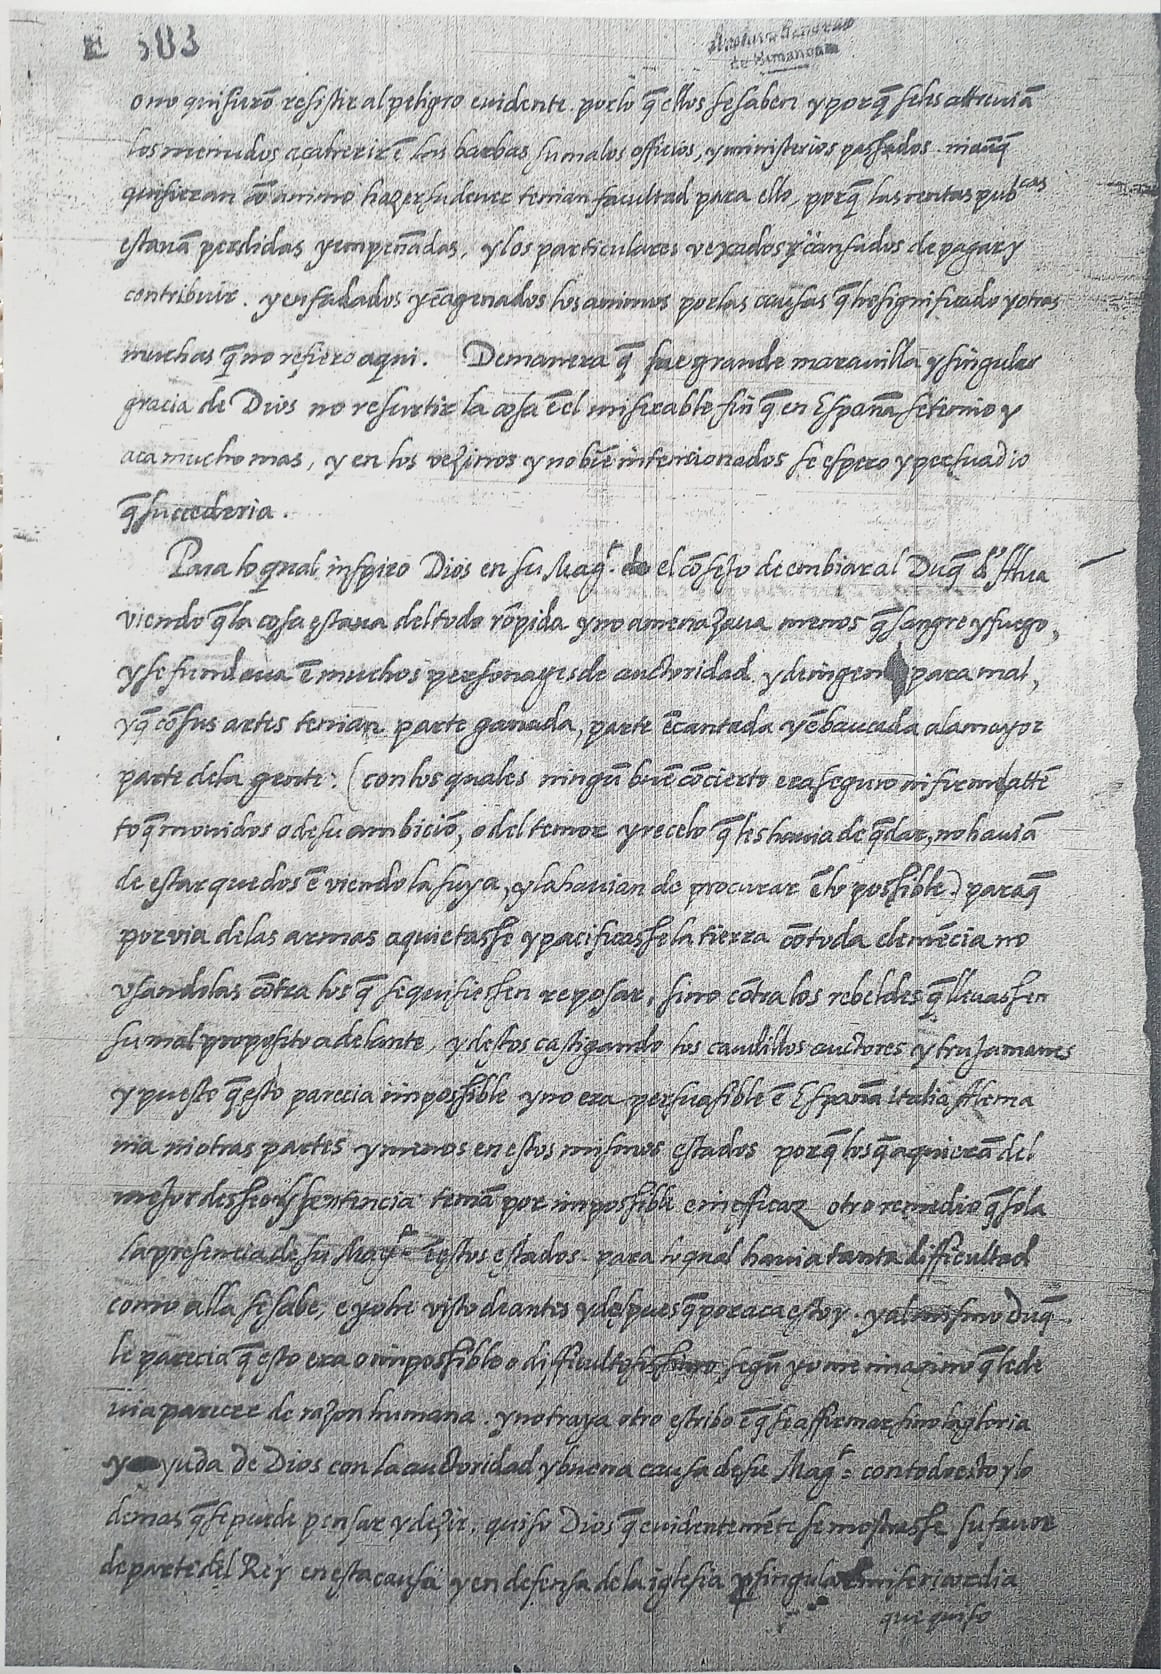 E 583
Archivo General
de Simancas
o no quisierō resistir al peligro evidente. por lo q̄ ellos se saben y porq̄ se les attreviā
los menudos a çaherir ē sus barbas sus malos officios, y ministerios passados. ni aūq̄
quisieran cō animo hazer su dever tenian facultad para ello, porq̄ las rentas pubcas
estavā perdidas y empeñadas, y los particulares vexados y cansados de pagar y
contribuir. y enfadados y eagenados los animos por las causas q̄ he significado y otras
muchas q̄ no refiero aqui. De manera q̄ fue grande maravilla y singular
gracia de Dios no resurtir la cosa ē el miserable fin q̄ en España se temio y
aca mucho mas, y en los vezinos y no biē intencionados se espero y persuadio
q̄ succederia.
Para lo qual inspiro Dios en su Magt. el cōsejo de embiar al Duq̄ d'Alva
viendo q̄ la cosa estava del todo rōpida y no amenazava menos q̄ sangre y fuego,
y se fundava ē muchos personages de auctoridad y de ingenio para mal,
y q̄ cō sus artes tenian parte ganada, parte ēcantada y ēbaucada a la mayor
parte de la gente: (con los quales ningū buē cōcierto era seguro ni firme attē
to q̄ movidos o de su ambiciō, o del temor y recelo q̄ les havia de q̄dar, no haviā
de estar quedos ē viendo la suya, y la havian de procurar ē lo possible) paraq̄
por via de las armas aquietasse y pacificasse la tierra cō toda clemēcia no
usandolas cōtra los q̄ se quisiessen reposar, sino cōtra los rebeldes q̄ llevassen
su mal proposito adelante, y destos castigando los caudillos auctores y trujamanes
y puesto q̄ esto parecia impossible y no era persuasible ē España italia Alema
nia ni otras partes y menos en estos mismos estados porq̄ los q̄ aqui erā del
mejor desseo y sentencia teniā por impossible e inefficaz otro remedio q̄ sola
la presencia de su Magt. ē estos estados. para lo qual havia tanta difficultad
como alla se sabe, e yo he visto de antes y despues q̄ por aca estoy. y al mismo Duq̄
le parecia q̄ esto era o impossible o difficultosissimo, segū yo me imagino q̄ le de
via parecer de razon humana. y no traya otro estribo ē q̄ se affirmar sino la gloria
y ayuda de Dios con la auctoridad y buena causa de su Magt. con todo esto y lo
demas q̄ se puede pensar y dezir, quiso Dios q̄ evidentemēte se mostrasse su favor
de parte del Rey en esta causa y en defensa de la iglesia por singular misericordia
que quiso